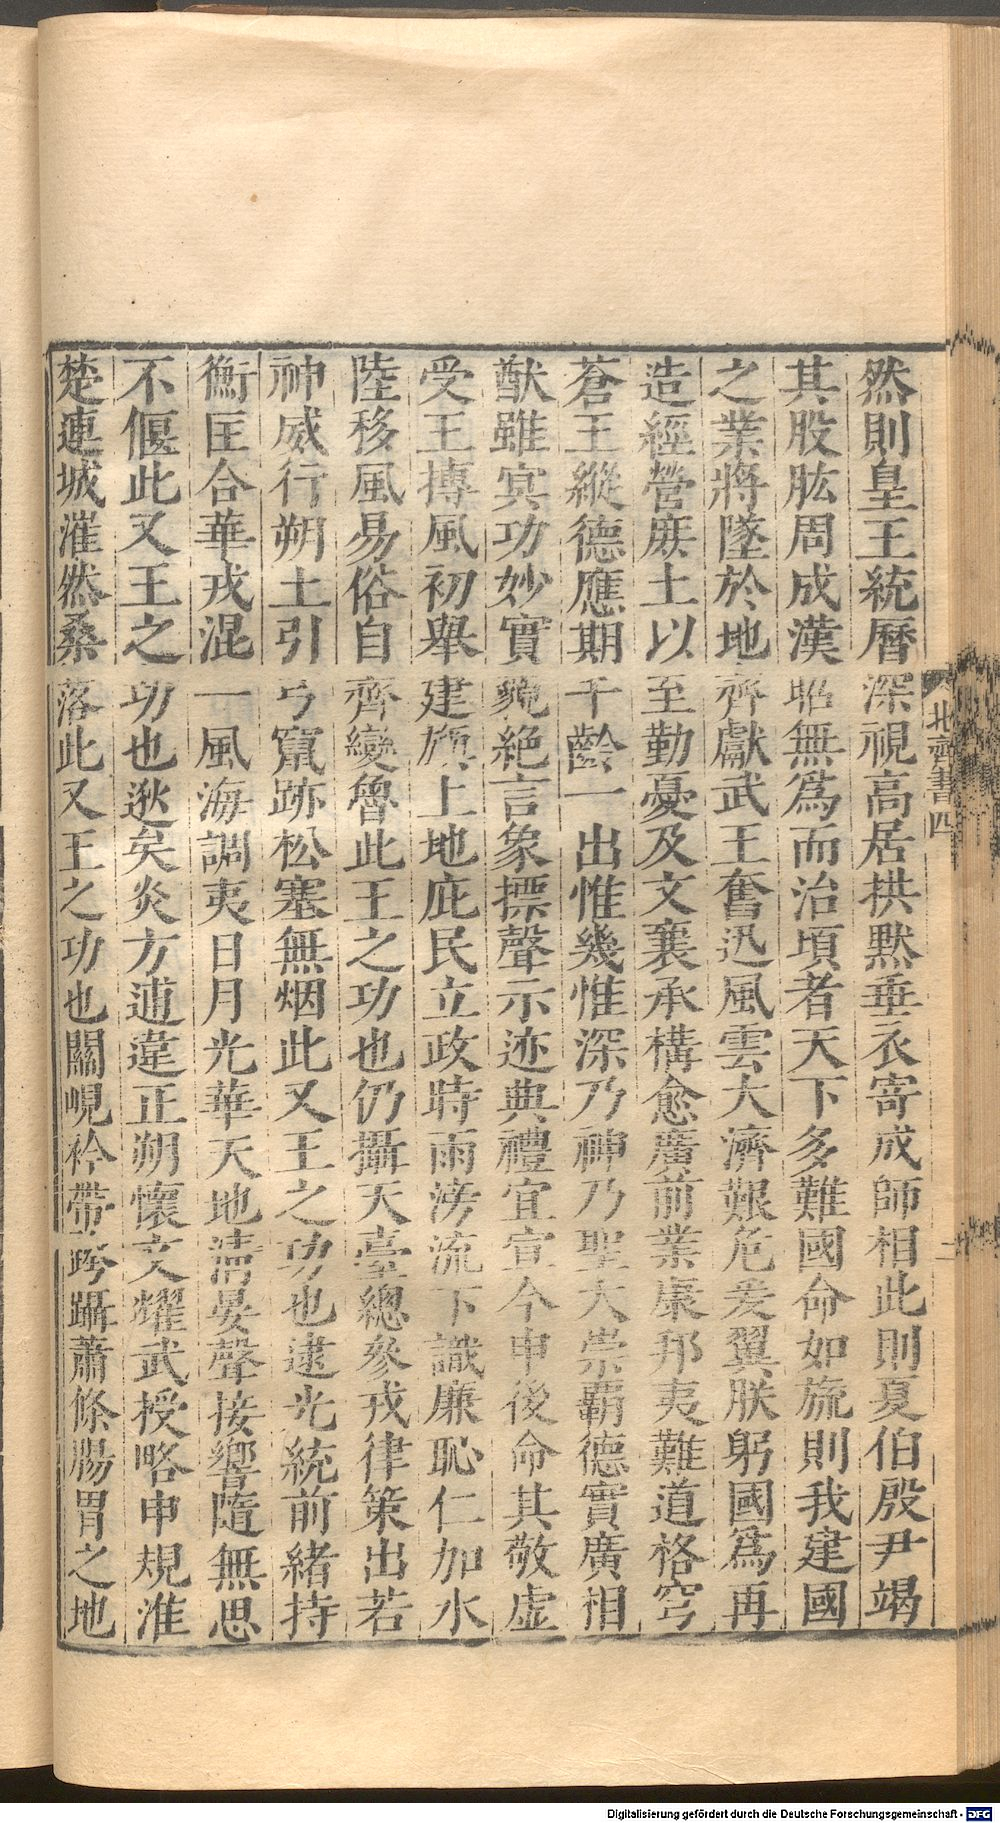 然則皇王統曆深視高居拱默垂衣寄成師相此則夏伯殷尹竭
其股肱周成漢昭無爲而治頃者天下多難國命如旒則我建國
之業將墜於地齊獻武王奮迅風雲大濟艱危爰翼朕躬國爲再
造經營庶土以至勤憂及文襄承構愈廣前業康邦夷難道格穹
蒼王縱德應期千齡一出惟幾惟深乃神乃聖大崇覇德實廣相
猷雖冥功妙實藐絕言象摽聲示迹典禮宜宣今申後命其敬虛
受王摶風初舉建旟上地庇民立政時雨滂流下識廉恥仁加水
陸移風易俗自齊變魯此王之功也仍攝天臺總參戎律策出若
神威行朔土引弓竄跡松塞無烟此又王之功也逮光統前緒持
衡匡合華戎混一風海調夷日月光華天地清晏聲接響隨無思
不偃此又王之功也逖矣炎方逋違正朔懷文耀武授略申規淮
楚連城漼然桑落此又王之功也關峴衿帶跨躡蕭條腸胃之地
北齊書四
二
Digitalisierung gefördert durch die Deutsche Forschungsgemeinschaft - DFG